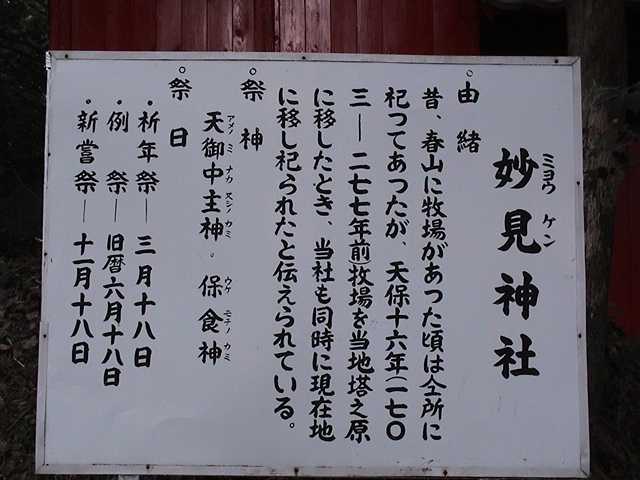 ミョウ ケン
妙見神社
○由緒
昔、春山に牧場があった頃は仝所に
祀つてあつたが、天保十六年(一七〇
三―二七七年前)牧場を当地塔之原
に移したとき、当社も同時に現在地
に移し祀られたと伝えられている。
○祭神
アメノ ミ ナカ ヌシノ カミ ウケ モチノ カミ
天御中主神。保食神
○祭日
・祈年祭― 三月十八日
・例祭― 旧暦六月十八日
・新嘗祭― 十一月十八日